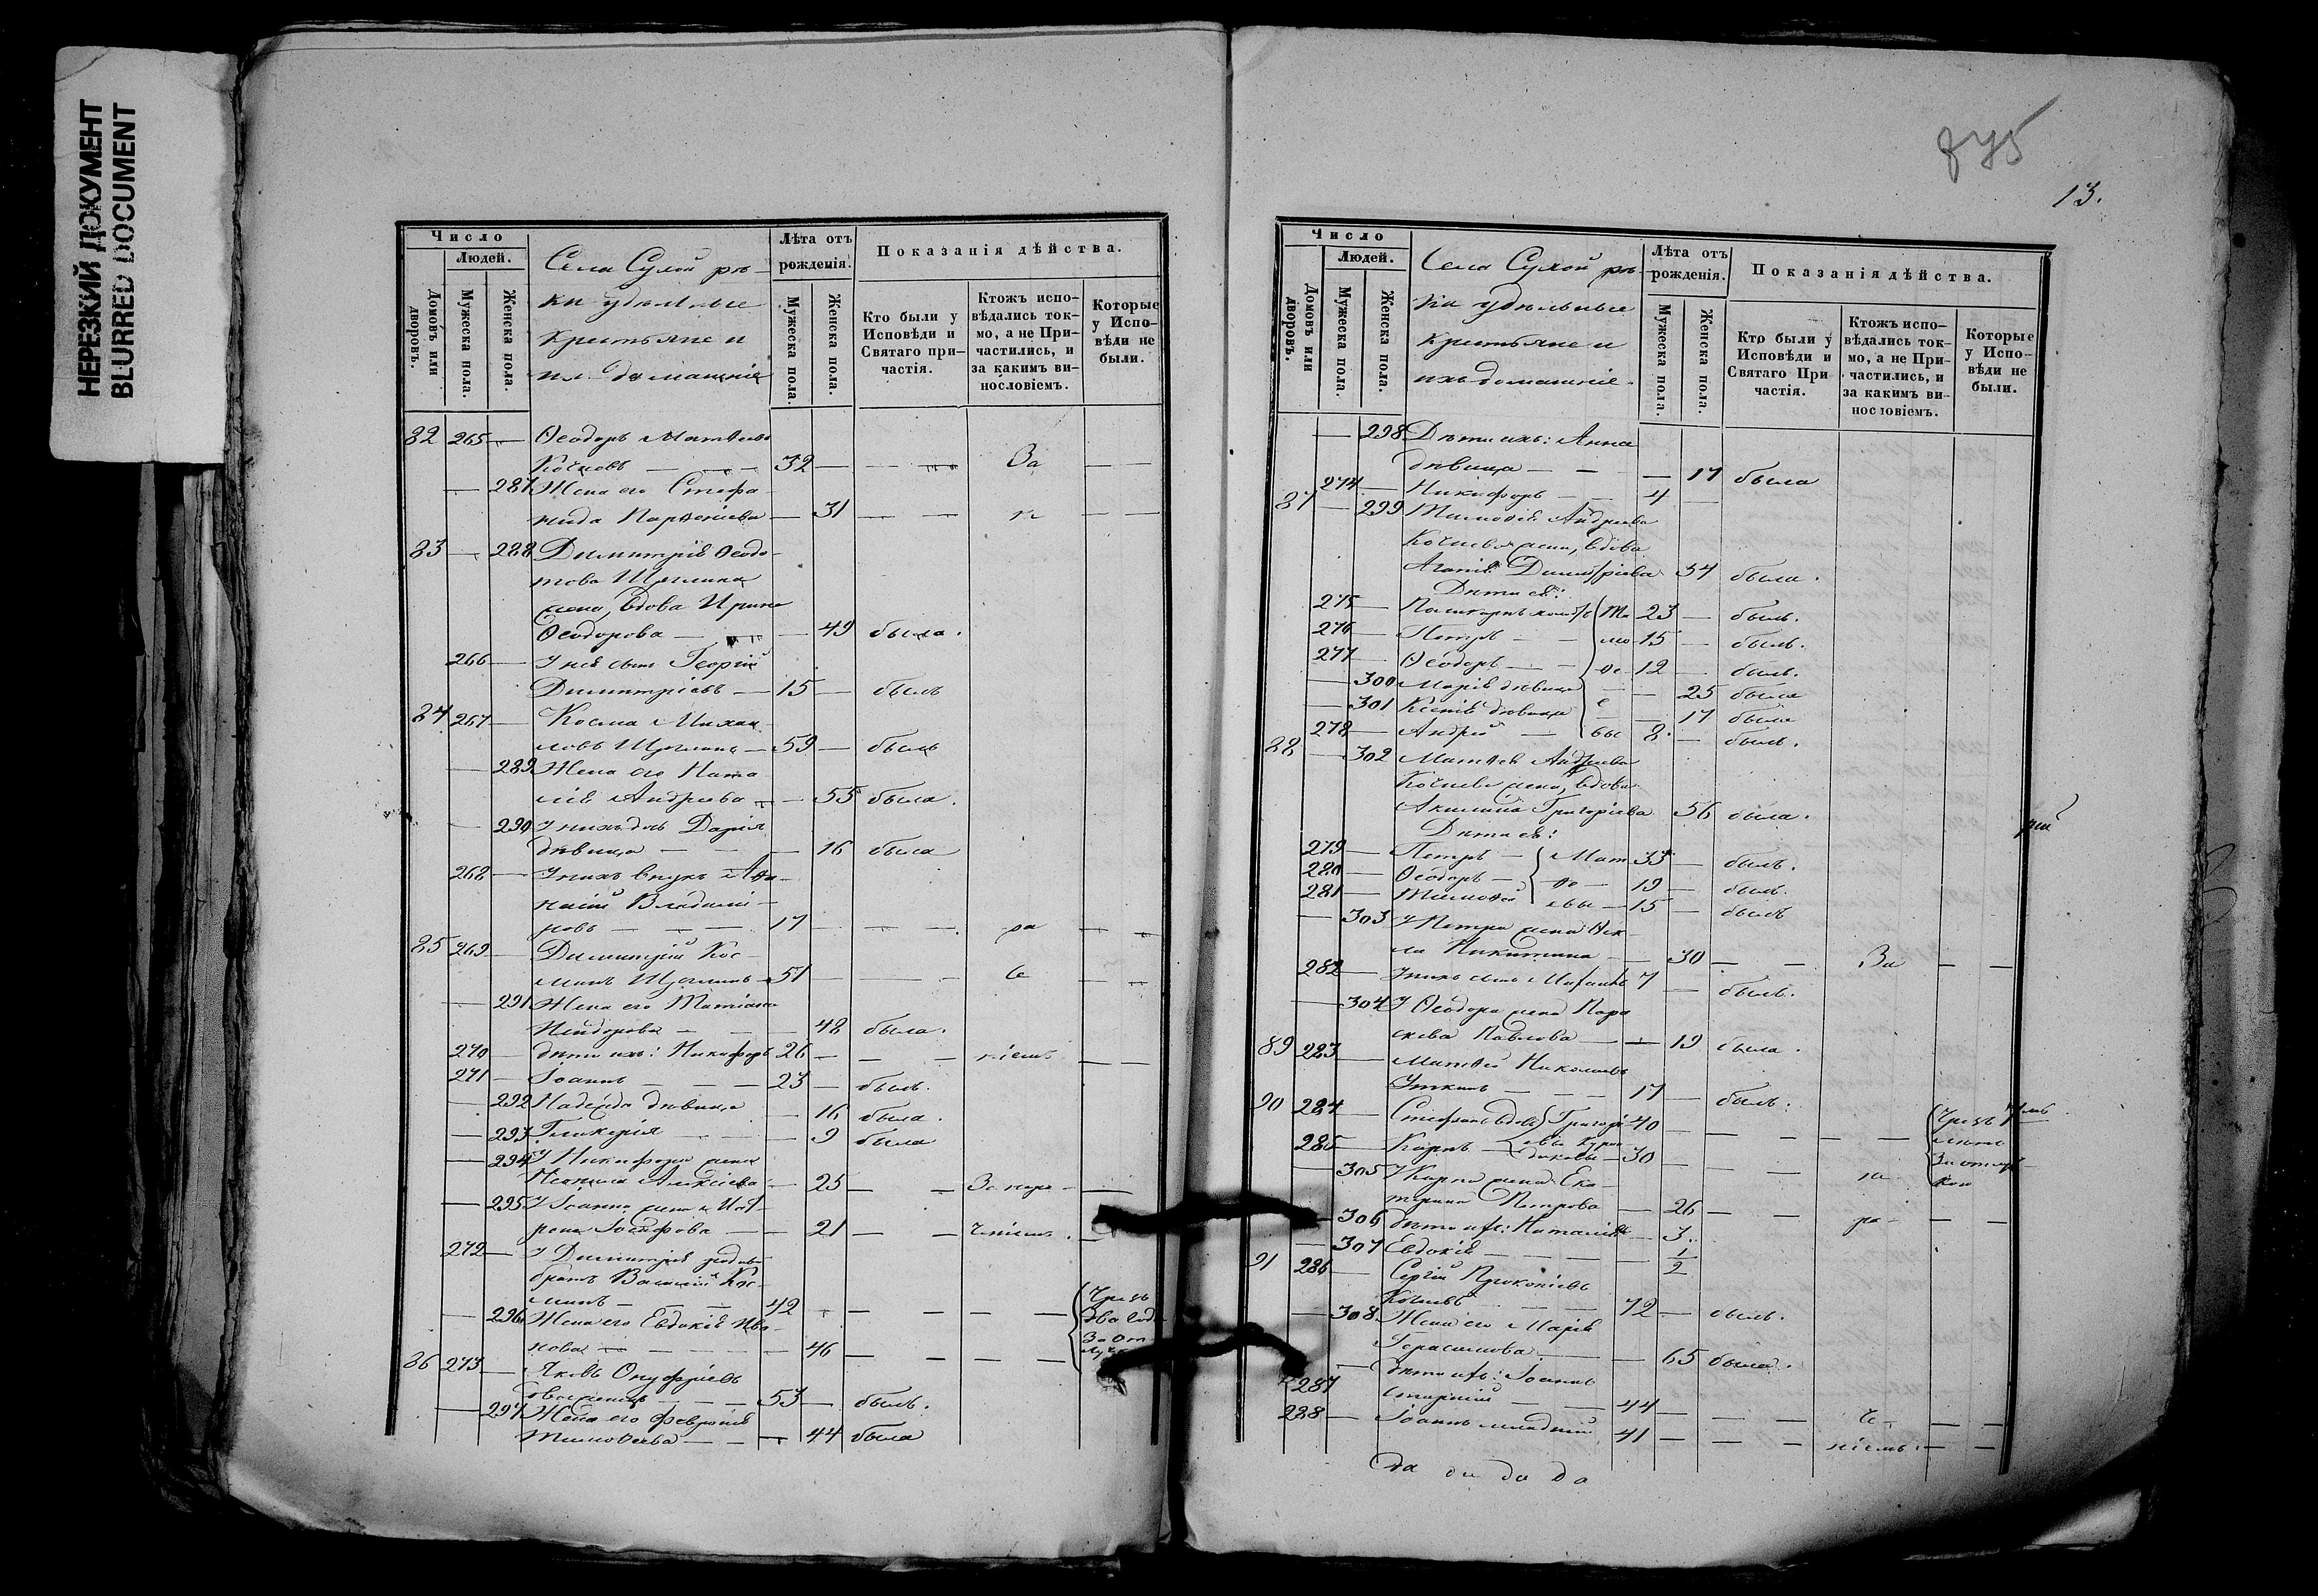 НЕРЕЗКИЙ ДОКУМЕНТ
BLURRED DOCUMENT
Число
Людей.
Домовъ или дворовъ.
Мужеска пола.
Женска пола.
Села Сухой рѣ-
ки удѣльные
крестьяне и
ихъ домашніе
Лѣта отъ рожденія.
Мужеска пола.
Женска пола.
Показанія дѣйства.
Кто были у Исповѣди и Святаго при-частія.
Ктожъ испо-вѣдались ток-мо, а не При-частились, и за какимъ ви-нословіемъ.
Которые у Испо-вѣди не были.
82 265 — Ѳеодоръ Матѳеевъ
Кочневъ — — — 32 — — — За — —
— 287 Жена его Стефа-
нида Парѳеніева — 31 — — — —
83 — 288 Димитрія Ѳедо-
това
жена, вдова Ирина
Ѳеодорова — — 49 была.
266 — У нея сынъ Георгій
Димитріевъ — 15 — былъ
84 267 — Косма Михаи-
ловъ — 59 — былъ
— 289 Жена его Ната-
лія Андреева — 55 была.
— 290 У нихъ дочь Дарія
дѣвица — — — 16 была
268 — У нихъ внукъ Аѳа-
насій
— — — 17 — — — ра — —
85 269 — Димитрій Кос-
минъ — 51 — — — — —
— 291 Жена его Татіана
— — 48 была.
270 — Дѣти ихъ: Никифоръ 26 — — — ніемъ — —
271 — Іоаннъ — — — 23 — былъ.
— 292 Надежда дѣвица — 16 была.
— 293 Гликерія — — — 9 была
— 294 У Никифора жена
Алексіева — 25 — —
— 295 У Іоанна жена
Іосифова — — 21 — —
272 — У Димитрія родный
братъ Василій Кос-
минъ — — — 42 — — — — — Чрезъ
два года
За от
луч
— 296 Жена его Евдокія Ива-
нова — — — — 46 — — — —
86 273 — Яковъ Онуфріевъ
— — — 53 — былъ.
— 297 Жена его Февронія
Тимоѳеева — — — 44 была
875
13.
Число
Людей.
Домовъ или дворовъ.
Мужеска пола.
Женска пола.
Села Сухой рѣ-
ки удѣльные
крестьяне и
ихъ домашніе
Лѣта отъ рожденія.
Мужеска пола.
Женска пола.
Показанія дѣйства.
Кто были у Исповѣди и Святаго При частія.
Ктожъ испо-вѣдались ток-мо, а не При-частились, и за какимъ ви-нословіемъ.
Которые у Испо-вѣди не были.
— 298 Дѣти ихъ: Анна
дѣвица — — — 17 была
274 — Никифоръ — — 4 —
87 — 299 Тимоѳея Андреева
Кочнева жена, вдова
Агапія Димитріева 54 была.
Дѣти ея:
275 — Поликарпъ Ти 23 — былъ.
276 — Петръ — — мо 15 — былъ.
277 — Ѳеодоръ — — ѳе 12 — былъ.
— 300 Марія дѣвица — — 25 была
— 301 Ксенія дѣвица е — — 17 была
278 — Андрей — вы 8 — былъ.
88 — 302 Матѳея Андреева
Кочнева жена, вдова
Акилина Григоріева 56 была.
Дѣти ея:
279 — Петръ — Мат 33 — былъ.
280 — Ѳеодоръ — ѳе — 19 — былъ.
281 — Тимоѳей евы — 15 — былъ
— 303 У Петра жена Ѳек-
ла Никитина — — 30 — — За — —
282 — У нихъ сынъ Михаилъ 7 — былъ.
— 304 У Ѳеодора жена Пара
скева Павлова — — 19 была.
89 283 — Матѳей Николаевъ
Уткинъ — — — 17 — былъ.
90 284 — Стефанъ вдовъ Григорі 40 — — — — — Чрезъ 7 мь
лѣтъ
За отлуч
кою
285 — Карпъ — евы — 30 — — —
— 305 У Карпа жена Ека-
терина Петрова — 26 — — ра — — —
— 306 Дѣти ихъ: Наталія — 3.
— 307 Евдокія — — — — 1/2
91 286 — Сергій Прокопіевъ
Кочневъ — — — 72 — былъ.
— 308 Жена его Марія
Герасимова — — 65 была.
287 — Дѣти ихъ: Іоаннъ
старшій — — 44 — — — — —
288 — Іоаннъ младшій 41 — — — ніемъ. — —